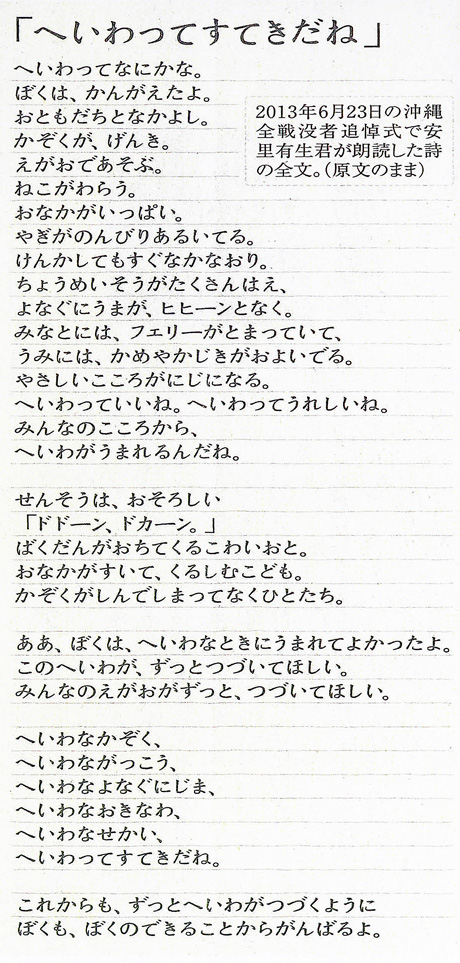 「へいわってすてきだね」
へいわってなにかな。
ぼくは、かんがえたよ。
おともだちとなかよし。
かぞくが、げんき。
えがおであそぶ。
ねこがわらう。
おなかがいっぱい。
やぎがのんびりあるいてる。
けんかしてもすぐなかなおり。
ちょうめいそうがたくさんはえ、
よなぐにうまが、ヒヒーンとなく。
みなとには、フェリーがとまっていて、
うみには、かめやかじきがおよいでる。
やさしいこころがにじになる。
へいわっていいね。へいわってうれしいね。
みんなのこころから、
へいわがうまれるんだね。
2013年6月23日の沖縄
全戦没者追悼式で安
里有生君が朗読した詩
の全文。(原文のまま)
せんそうは、おそろしい
「ドドーン、ドカーン。」
ばくだんがおちてくるこわいおと。
おなかがすいて、くるしむこども。
かぞくがしんでしまってなくひとたち。
ああ、ぼくは、へいわなときにうまれてよかったよ。
このへいわが、ずっとつづいてほしい。
みんなのえがおがずっと、つづいてほしい。
へいわなかぞく、
へいわながっこう、
へいわなよなぐにじま、
へいわなおきなわ、
へいわなせかい、
へいわってすてきだね。
これからも、ずっとへいわがつづくように
ぼくも、ぼくのできることからがんばるよ。